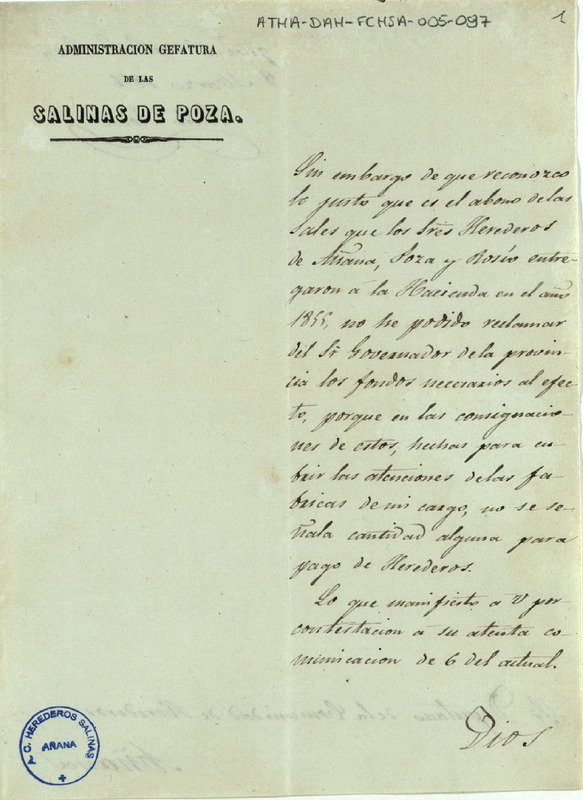 ATHA-DAH-FCHSA-005-097
1
ADMINISTRACION GEFATURA
DE LAS
SALINAS DE POZA.
Sin embargo de que reconozco
lo justo que es el abono de las
sales que los Sres Herederos
de Añana, Poza y Rosío entre-
garon á la Hacienda en el año
1855, no he podido reclamar
del Sr Governador de la provin-
cia los fondos necesarios al efec-
to, porque en las consignacio-
nes de estos, hechas para cu-
brir las atenciones de las fa-
bricas de mi cargo, no se se-
ñala cantidad alguna para
pago de Herederos.
Lo que manifiesto a V por
contestacion á su atenta co-
municacion de 6 del actual.
Dios
C. HEREDEROS SALINAS
AÑANA